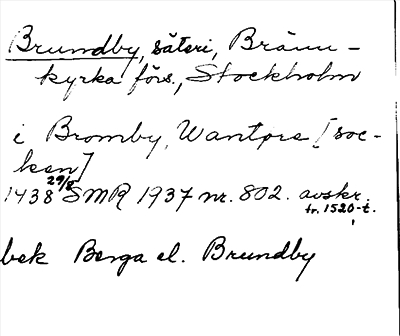 Brundby, säteri, Bränn-
kyrka förs., Stockholm
i Bromby, Wantøra [soc-
ken]
1438 29/8 SMR 1937 nr. 802. avskr.
fr. 1520-t.
bek Berga el. Brundby